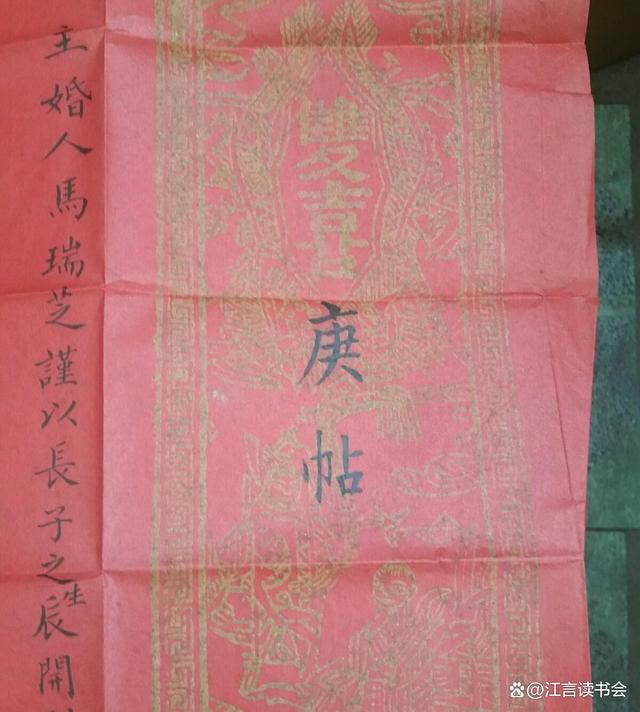 雙喜
庚帖
主婚人馬瑞芝謹以長子之生辰開
@江言读书会